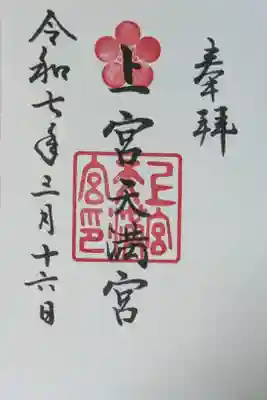 奉拝
上宮天満宮
上宮天満宮印
令和七年三月十六日